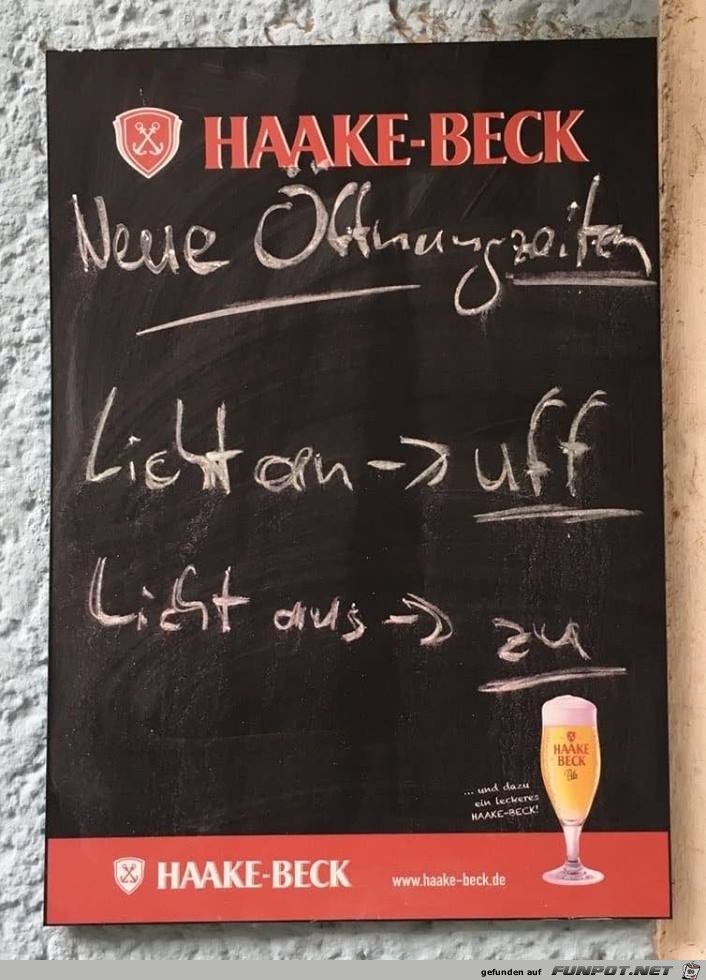 HAAKE-BECK
Neue Öffnungzeiten
Licht an -> uff
Licht aus -> zu
HAAKE
BECK
Pils
... und dazu
ein leckeres
HAAKE-BECK!
HAAKE-BECK
www.haake-beck.de
gefunden auf FUNPOT.NET